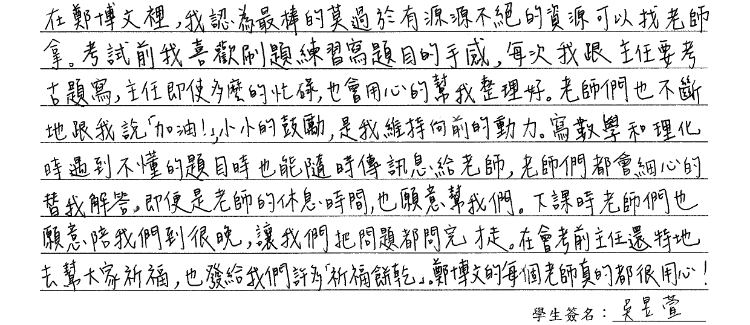 在鄭博文裡,我認為最棒的莫過於有源源不絕的資源可以找老師
拿。考試前我喜歡刷題練習寫題目的手感,每次我跟主任要考
古題寫,主任即使多麼的忙碌,也會用心的幫我整理好。老師們也不斷
地跟我說「加油!」,小小的鼓勵,是我維持向前的動力。寫數學和理化
時遇到不懂的題目時也能隨時傳訊息給老師,老師們都會細心的
替我解答。即便是老師的休息時間,也願意幫我們。下課時老師們也
願意陪我們到很晚,讓我們把問題都問完才走。在會考前主任還特地
去幫大家祈福,也發給我們許多「祈福餅乾」。鄭博文的每個老師真的都很用心!
學生簽名:吳昱萱